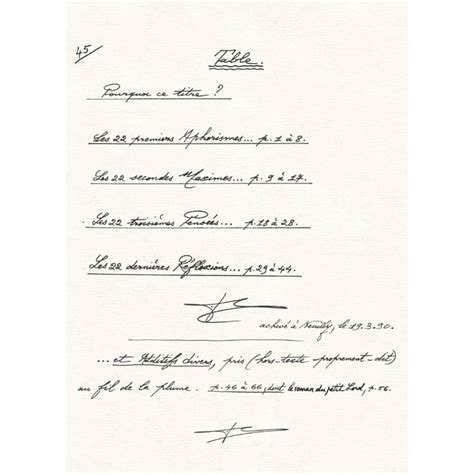 45
Table.
Pourquoi ce titre ?
Les 22 premiers Aphorismes... p. 1 à 8.
Les 22 secondes Maximes... p. 9 à 17.
Les 22 troisièmes Pensées... p. 18 à 28.
Les 22 dernières Réflexions... p. 29 à 44.
achevé à Neuilly, le 19.3.90.
... et Additifs divers, pris (hors-texte-proprement-dit)
au fil de la plume. p. 46 à 66, dont le roman du petit Lord, p. 56.